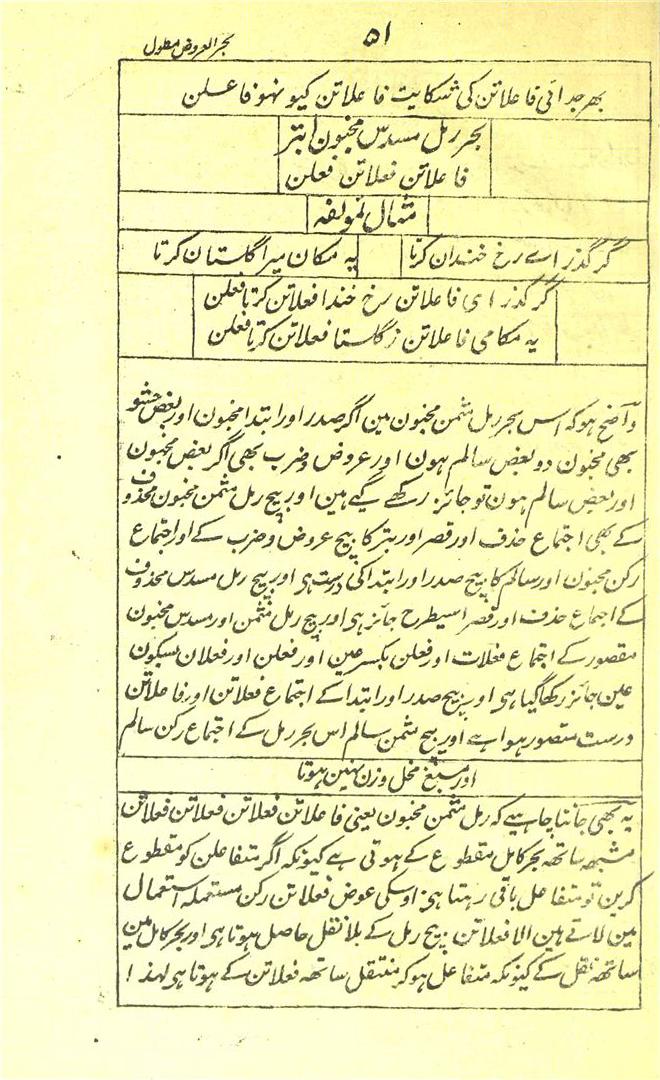 ۵۱
بحر العروض مطول
بھر جدائی فاعلاتن کی شکایت فاعلاتن کیو نہو فاعلن
بحر رمل مسدس مخبون ابتر
فاعلاتن فعلاتن فعلن
مثال لمولفہ
گر گذر اے رخ خندان کرتا یہ مکان میرا گلستان کرتا
گر گذر ای فاعلاتن رخ خندا فعلاتن کرتا فعلن
یہ مکامی فاعلاتن ر گلستا فعلاتن کرتا فعلن
واضح ہو کہ اس بحر رمل مثمن مخبون مین اگر صدر اور ابتدا مخبون اور بعض حشو
بھی مخبون دو بعض سالم ہون اور عروض و ضرب بھی اگر بعض مخبون
اور بعض سالم ہون تو جائز رکھے گیے ہین اور بیچ رمل مثمن مخبون محذوف
کے بھی اجتماع حذف اور قصر اور بتر کا بیچ عروض و ضرب کے اور اجتماع
رکن مخبون اور سالم کا بیچ صدر اور ابتدا کی درست ہی اور بیچ رمل مسدس محذوف
کے اجماع حذف اور قصر اسیطرح جائز ہی اور بیچ رمل مثمن اور مسدس مخبون
مقصور کے اجتماع فعلات اور فعلن بکسر عین اور فعلن اور فعلان بسکون
عین جائز رکھا گیا ہی اور بیچ صدر اور ابتدا کے اجتماع فعلاتن اور فاعلاتن
درست متصور ہوا ہے اور بیچ مثمن سالم اس بحر رمل کے اجتماع رکن سالم
اور مسبغ مخل وزن نہین ہوتا
یہ بھی جاننا چاہیے کہ رمل مثمن مخبون یعنی فاعلاتن فعلاتن فعلاتن فعلاتن
مشبہ ساتھہ بحر کامل مقطوع کے ہوتی ہے کیونکہ اگر متفاعلن کو مقطوع
کرین تو متفاعل باقی رہتا ہی اوسکی عوض فعلاتن رکن مستعملہ استعمال
مین لاتے ہین الا فعلاتن بیچ رمل کے بلا نقل حاصل ہوتا ہی اور بحر کامل مین
ساتھہ نقل کے کیونکہ متفاعل ہو کر منتقل ساتھہ فعلاتن کے ہوتا ہی لہذا !